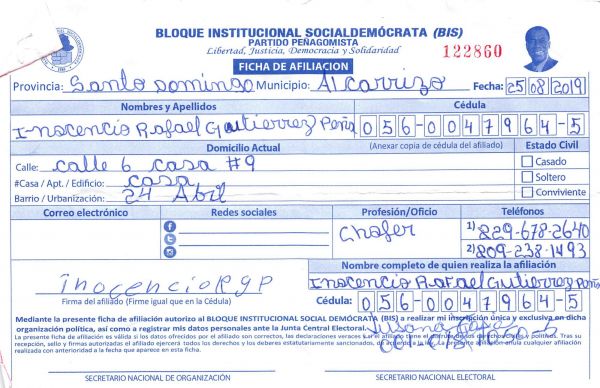 BLOQUE INSTITUCIONAL SOCIALDEMÓCRATA (BIS)
PARTIDO PEÑAGOMISTA
Libertad, Justicia, Democracia y Solidaridad
122860
FICHA DE AFILIACION
Provincia: Santo Domingo Municipio: Alcarrizo Fecha: 25/08/2019
Nombres y Apellidos Cédula
Inocencio Rafael Gutierrez Peña 056-0047964-5
Domicilio Actual (Anexar copia de cédula del afiliado) Estado Civil
Calle: calle 6 casa #9 Casado
#Casa / Apt. / Edificio: casa Soltero
Barrio / Urbanización: 24 Abril Conviviente
Correo electrónico Redes sociales Profesión/Oficio Teléfonos
Chofer 1) 829-678-2640
2) 809-238-1493
Nombre completo de quien realiza la afiliación
Inocencio Rafael Gutierrez Peña
inocencio R g P
Firma del afiliado (Firme igual que en la Cédula) Cédula: 056-0047964-5
Mediante la presente ficha de afiliación autorizo al BLOQUE INSTITUCIONAL SOCIAL DEMÓCRATA (BIS) a realizar mi inscripción única y exclusiva en dicha
organización política, así como a registrar mis datos personales ante la Junta Central Electoral.
La presente ficha de afiliación es válida si los datos ofrecidos por el afiliado son correctos, las declaraciones
recepción, sello y firmas autorizadas el afiliado ejercerá todos los derechos y los deberes estatutariamente sancionados,
realizada con anterioridad a la fecha que aparece en esta ficha.
SECRETARIO NACIONAL DE ORGANIZACIÓN SECRETARIO NACIONAL ELECTORAL